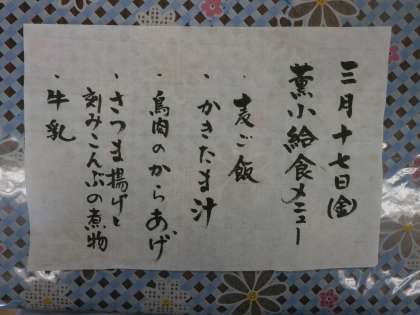 三月十七日(金)
薫小給食メニュー
・麦ご飯
・かきたま汁
・鳥肉のからあげ
・さつま揚げと
刻みこんぶの煮物
・牛乳